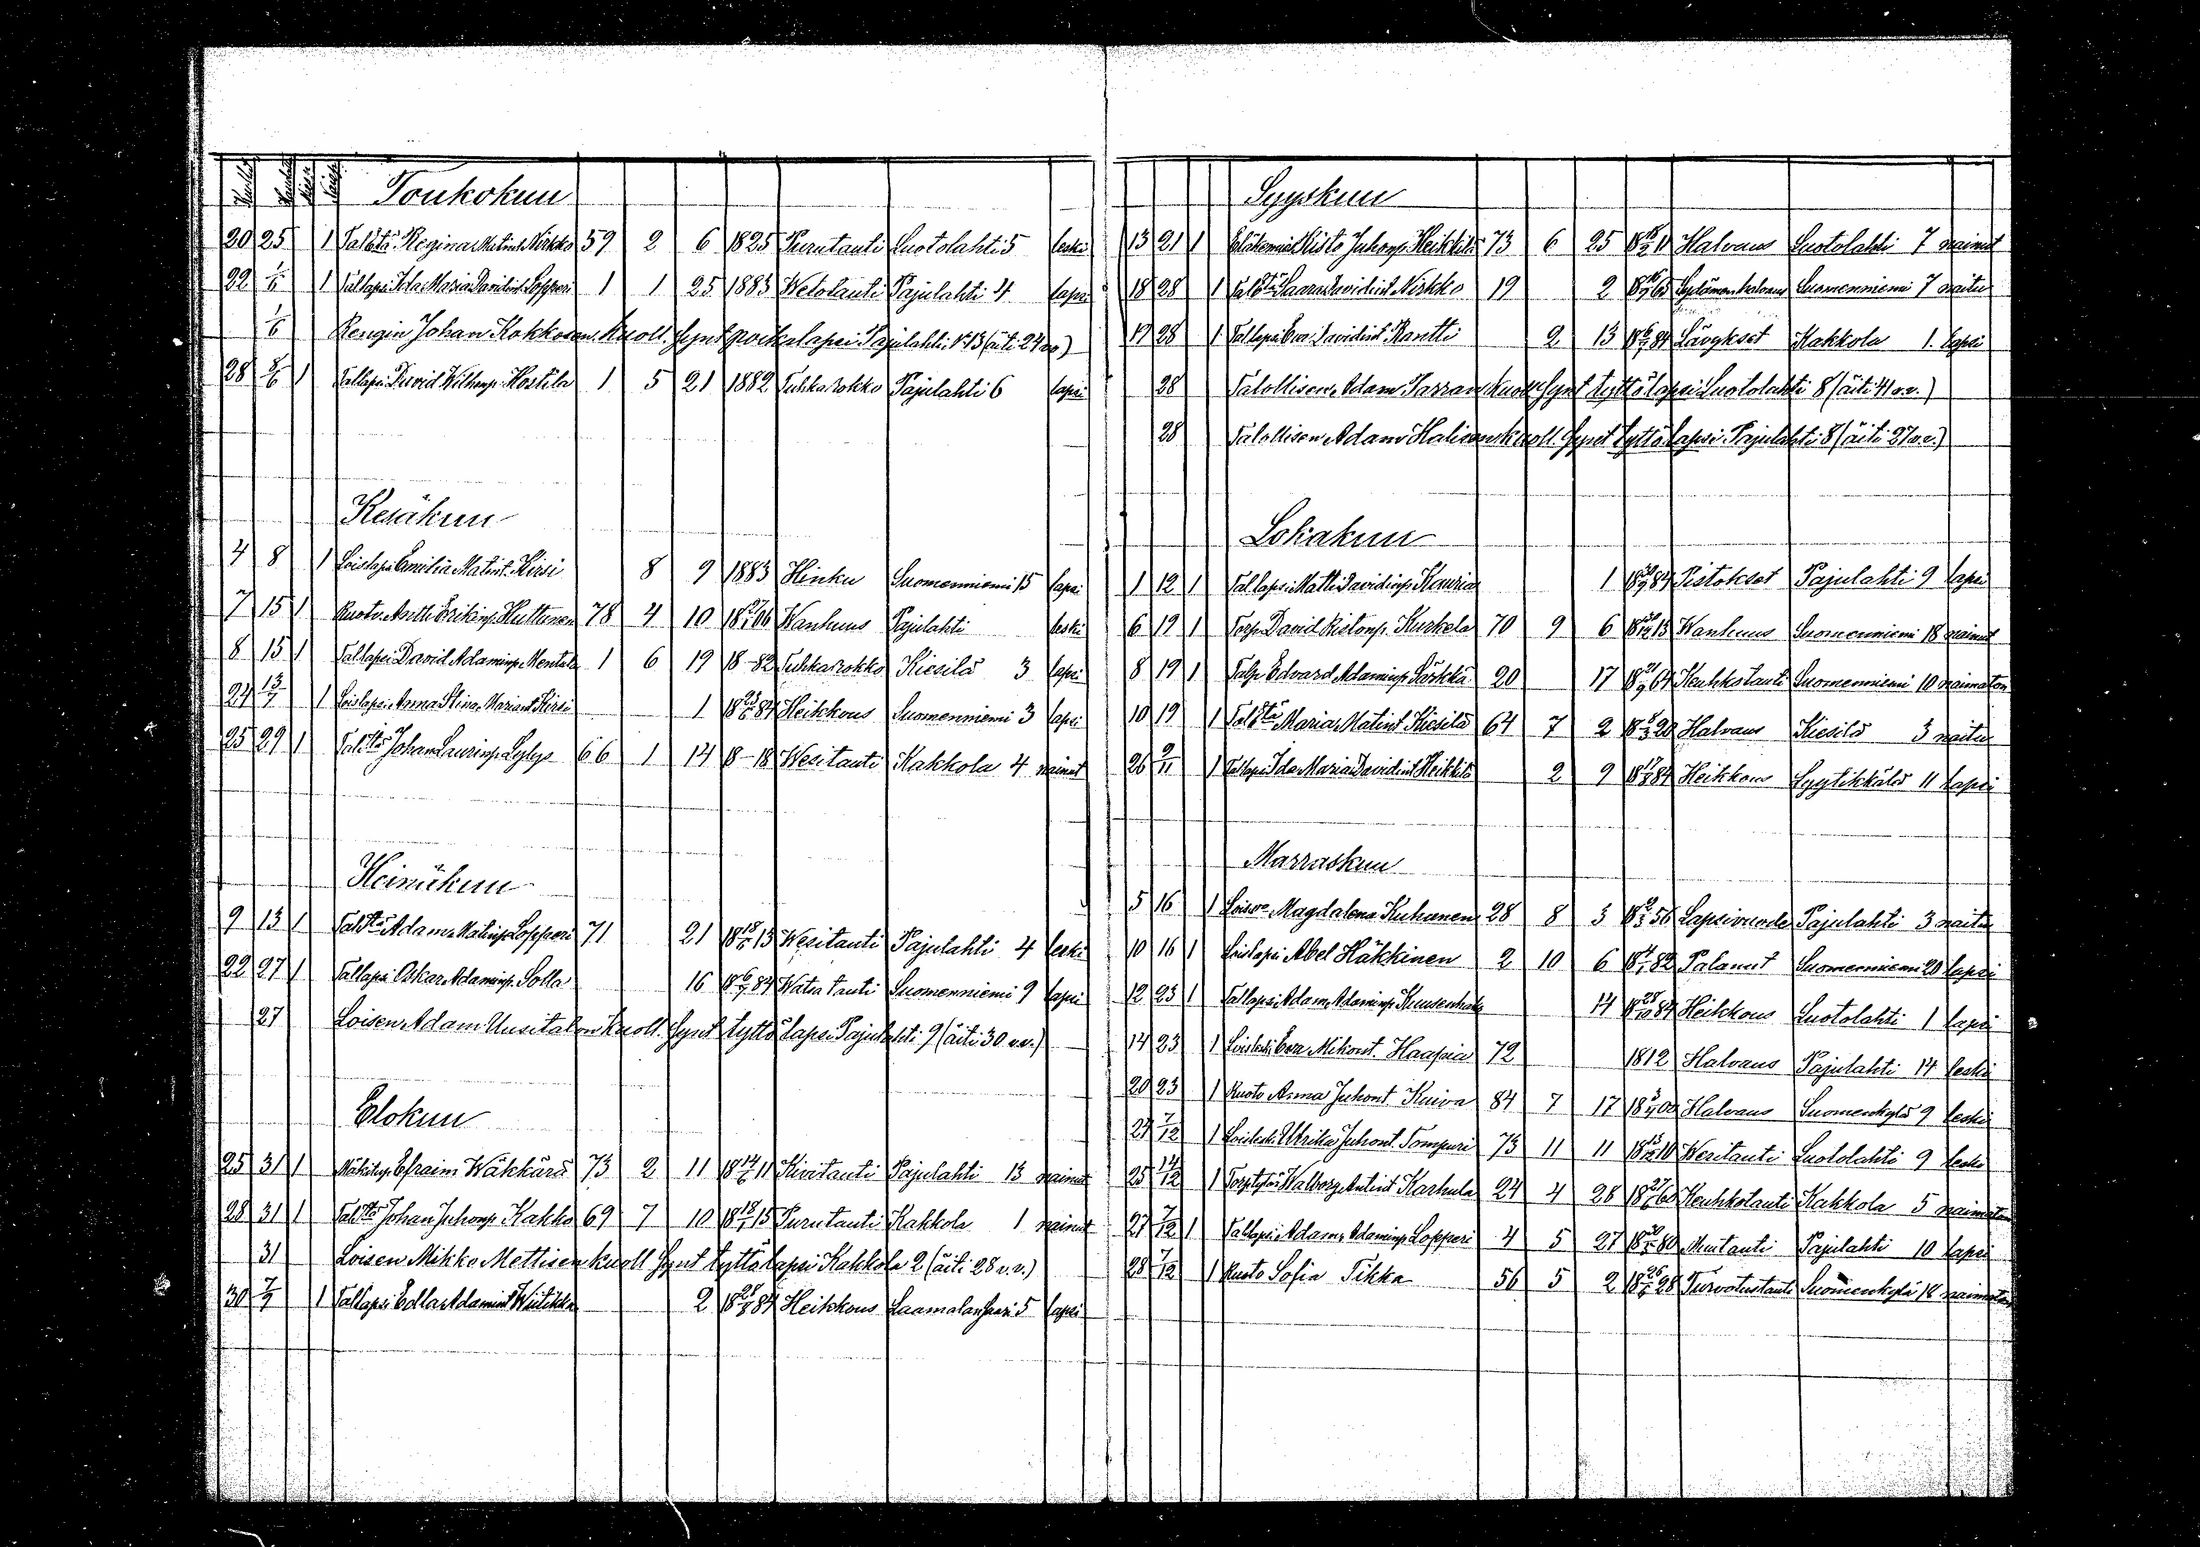 Toukokuu
20 25 1 Tal:tä Regina Matint. Nirkko 59 2 6 1825 Purutauti Suotolahti 5 leski
22 1/6 1 Tal.lapsi Ida Maria Davidint. Lopperi 1 1 25 1883 Wetotauti Pajulahti 4 lapsi
1/6 Rengin Johan Kokkosen kuoll. synt. poikalapsi Pajulahti (äiti 24 vv)
28 8/6 1 Tal.lapsi David Wilhemp. Hostila 1 5 21 1882 Tuhkarokko Pajulahti 6 lapsi
Kesäkuu
4 8 1 Loislapsi Emilia Matint. Hirsi 8 9 1883 Hinku Suomenniemi 15 lapsi
7 15 1 Ruotu Antti Erikinp. Huttunen 78 4 10 Wanhuus Pajulahti leski
8 15 1 Tal.lapsi David Adaminp. Mentula 1 6 19 18-82 Tuhkarokko Kiesilä 3 lapsi
24 13/7 1 Loislapsi Anna Stina Mariant. Hirsi 1 18 23/6 84 Heikkous Suomenniemi 3 lapsi
25 29 1 Tal:tä Johan Laurinp. Sylys 66 1 14 18-18 Wesitauti Kakkola 4 nainut
Heinäkuu
9 13 1 Tal:tä Adam Matinp. Lopperi 71 21 18 18/6 13 Wesitauti Pajulahti 4 leski
22 27 1 Tal.lapsi Oskar Adaminp. Solla 16 18 6/7 84 Watsatauti Suomenniemi 9 lapsi
27 Loisen Adam Uusitalon kuoll. synt. tyttölapsi Pajulahti 9 (äiti 30 v.v.)
Elokuu
25 31 1 Mäkitup. Efraim Häkkärä 73 2 11 18 14/6 11 Kivitauti Pajulahti 13 nainut
28 31 1 Tal:tä Johan Juhonp. Kakko 69 7 10 18 18/1 15 Purutauti Kakkola 1 nainut
31 Loisen Mikko Mettisen kuoll. synt. tyttölapsi Kakkola 2 (äiti 28 v.v.)
30 7/9 1 Tal.lapsi Edla Adamint. Wiitikka 2 18 28/8 84 Heikkous Laamalansaari 5 lapsi
Syyskuu
13 21 1 Risto Juhonp. Heikkilä 73 6 25 Halvaus Suotolahti 7 nainut
18 28 1 Tal:tä Saara Davidint. Nirkko 19 2 Sydämen halvaus Suomenniemi 7 naitu
19 28 1 Tal.lapsi Eva Davidint. Rantti 2 13 18 6/7 84 Lävykset Kakkola 1 lapsi
28 Talollisen Adam Tarran kuoll. synt. tyttölapsi Suotolahti 8 (äiti 41 v.v.)
28 Talollisen Adam Halisen kuoll. synt. tyttölapsi Pajulahti 8 (äiti 27 v.v.)
Lokakuu
1 12 1 Tal.lapsi Matti Davidinp. Kouria 1 18 30/9 84 Pistokset Pajulahti 9 lapsi
6 19 1 Torp. David Ristonp. Kurkela 70 9 6 Wanhuus Suomenniemi 18 nainut
8 19 1 Talp. Edvard Adaminp. Särkkä 20 17 18 21/9 64 Keuhkotauti Suomenniemi 10 naimaton
10 19 1 Tal:tä Maria Matint. Kiesilä 64 7 2 18 8/3 20 Halvaus Kiesilä 3 naitu
26 2/11 1 Tal.lapsi Ida Maria Davidint. Heikkilä 2 9 18 17/8 84 Heikkous Syytikkälä 11 lapsi
Marraskuu
5 16 1 Loisv. Magdalena Kuhanen 28 8 3 18 2/3 56 Lapsivuode Pajulahti 3 naitu
10 16 1 Loislapsi Abel Häkkinen 2 10 6 18 4/1 82 Palanut Suomenniemi 20 lapsi
12 23 1 Tal.lapsi Adam Adaminp. 14 18 28/10 84 Heikkous Suotolahti 1 lapsi
14 23 1 Loisleski Eva Mikont. Haapia 72 1812 Halvaus Pajulahti 14 leski
20 23 1 Ruotu Anna Juhont. Kuiva 84 7 17 Halvaus Suomenkylä 9 leski
24 7/12 1 Loisleski Ulrika Juhont. Tompuri 73 11 11 18 13/12 10 Wesitauti Suotolahti 9 leski
25 14/12 1 Torp.tytär Walborg Antint. Karhula 24 4 28 18 27/6 60 Keuhkotauti Kakkola 5 naimaton
27 7/12 1 Tal.lapsi Adam Adaminp. Lopperi 4 5 27 18 30/5 80 Muutauti Pajulahti 10 lapsi
28 7/12 1 Ruotu Sofia Tikka 56 5 2 18 26/6 28 Turvotustauti Suomenkylä 18 naimaton